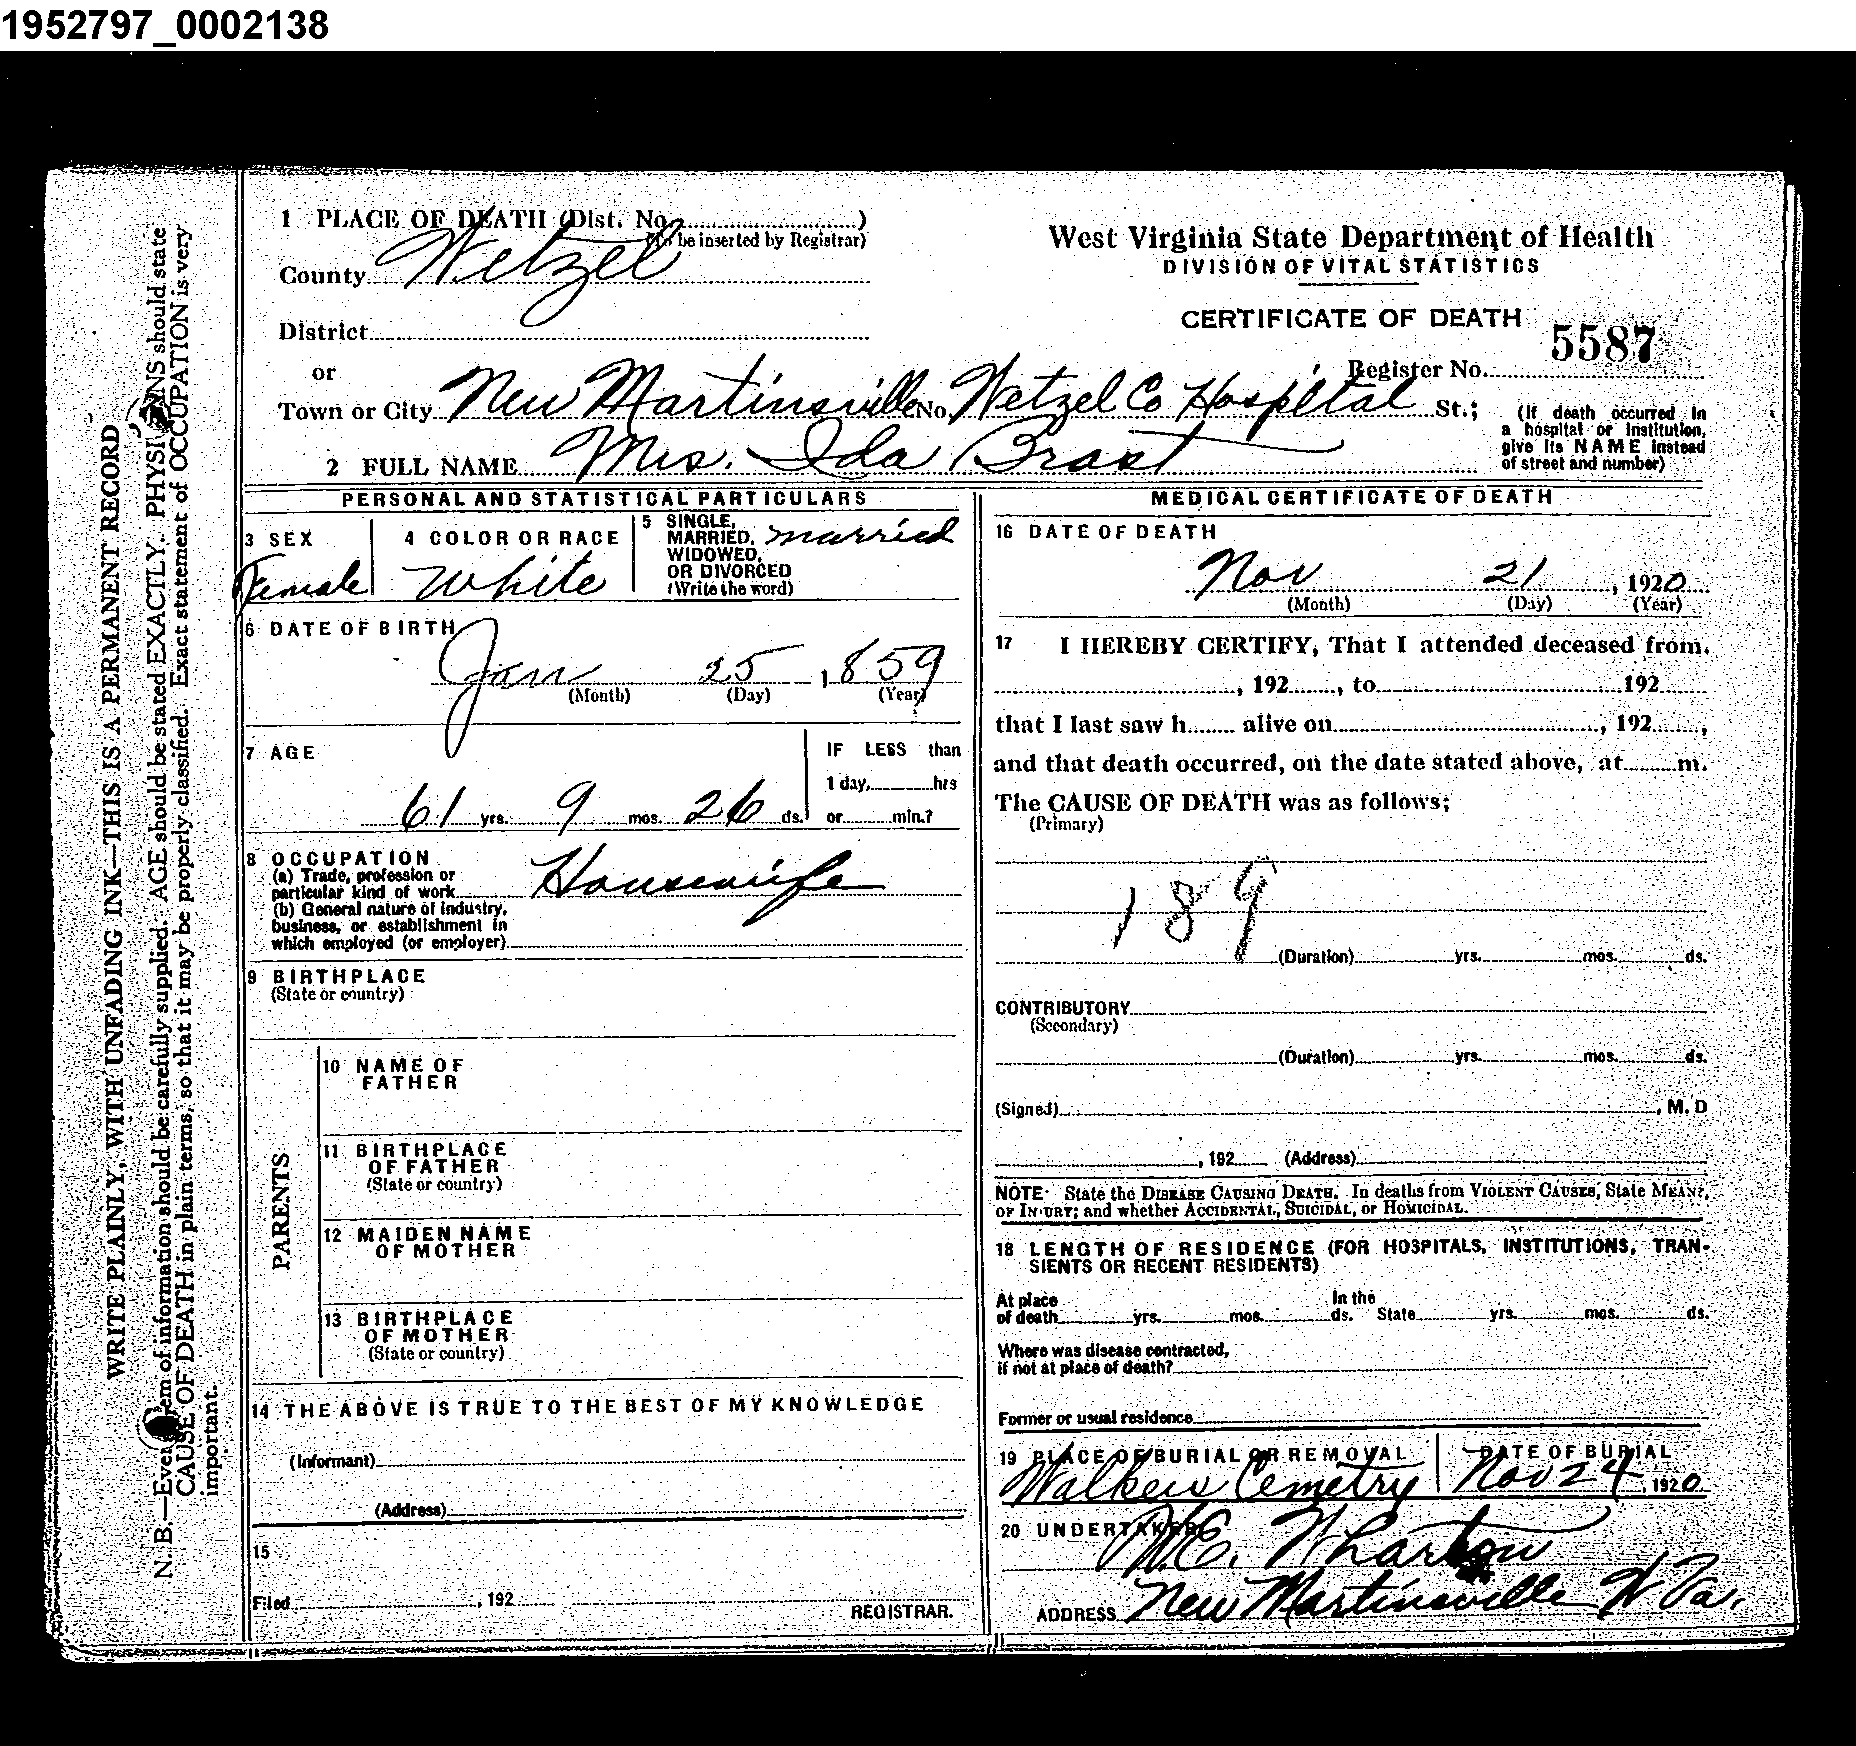 1952797_0002138
WRITE PLAINLY, WITH UNFADING INK—THIS IS A PERMANENT RECORD
N. B.—Every item of information should be carefully supplied. AGE should be stated EXACTLY. PHYSICIANS should state
CAUSE OF DEATH in plain terms, so that it may be properly classified. Exact statement of OCCUPATION is very
important.
1 PLACE OF DEATH (Dist. No. )
(To be inserted by Registrar)
County Wetzel
District
or
Town or City New Martinsville No. Wetzel Co Hospital St.;
(If death occurred in
a hospital or institution,
give its NAME instead
of street and number)
West Virginia State Department of Health
DIVISION OF VITAL STATISTICS
CERTIFICATE OF DEATH
5587
Register No.
2 FULL NAME Mrs. Ida Brast
PERSONAL AND STATISTICAL PARTICULARS
3 SEX
Female
4 COLOR OR RACE
White
5 SINGLE,
MARRIED,
WIDOWED,
OR DIVORCED
(Write the word)
married
6 DATE OF BIRTH
Jan 25, 1859
(Month) (Day) (Year)
7 AGE
61 yrs. 9 mos. 26 ds.
IF LESS than
1 day, hrs
or min.?
8 OCCUPATION
(a) Trade, profession or
particular kind of work Housewife
(b) General nature of industry,
business, or establishment in
which employed (or employer)
9 BIRTHPLACE
(State or country)
PARENTS
10 NAME OF
FATHER
11 BIRTHPLACE
OF FATHER
(State or country)
12 MAIDEN NAME
OF MOTHER
13 BIRTHPLACE
OF MOTHER
(State or country)
14 THE ABOVE IS TRUE TO THE BEST OF MY KNOWLEDGE
(Informant)
(Address)
15
Filed , 192
REGISTRAR.
MEDICAL CERTIFICATE OF DEATH
16 DATE OF DEATH
Nov 21, 1920
(Month) (Day) (Year)
17 I HEREBY CERTIFY, That I attended deceased from
, 192 , to 192
that I last saw h alive on , 192 ,
and that death occurred, on the date stated above, at m.
The CAUSE OF DEATH was as follows;
(Primary)
189
(Duration) yrs. mos. ds.
CONTRIBUTORY
(Secondary)
(Duration) yrs. mos. ds.
(Signed) , M. D
, 192 (Address)
NOTE State the DISEASE CAUSING DEATH. In deaths from VIOLENT CAUSES, State MEANS,
OF INJURY; and whether ACCIDENTAL, SUICIDAL, or HOMICIDAL.
18 LENGTH OF RESIDENCE (FOR HOSPITALS, INSTITUTIONS, TRAN-
SIENTS OR RECENT RESIDENTS)
At place
of death yrs. mos. ds.
In the
State yrs. mos. ds.
Where was disease contracted,
if not at place of death?
Former or usual residence
19 PLACE OF BURIAL OR REMOVAL
Walkers Cemetry
DATE OF BURIAL
Nov 24, 1920
20 UNDERTAKER
W.E. Wharton
ADDRESS New Martinsville W Va.